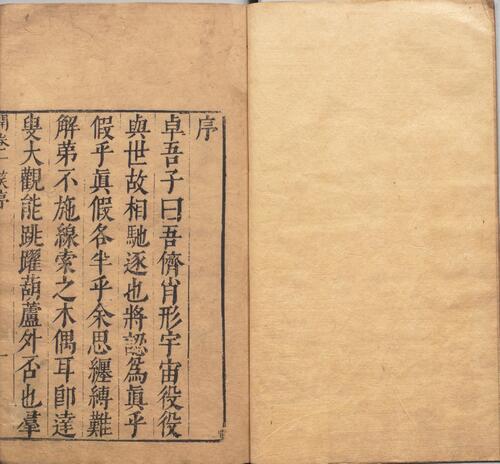 序
卓吾子曰吾儕肖形宇宙役役
與世故相馳逐也將認爲真乎
假乎真假各半乎余思纏縛難
解弟不施線索之木偶耳卽達
叟大觀能跳躍葫蘆外否也羣
開卷一笑序
一